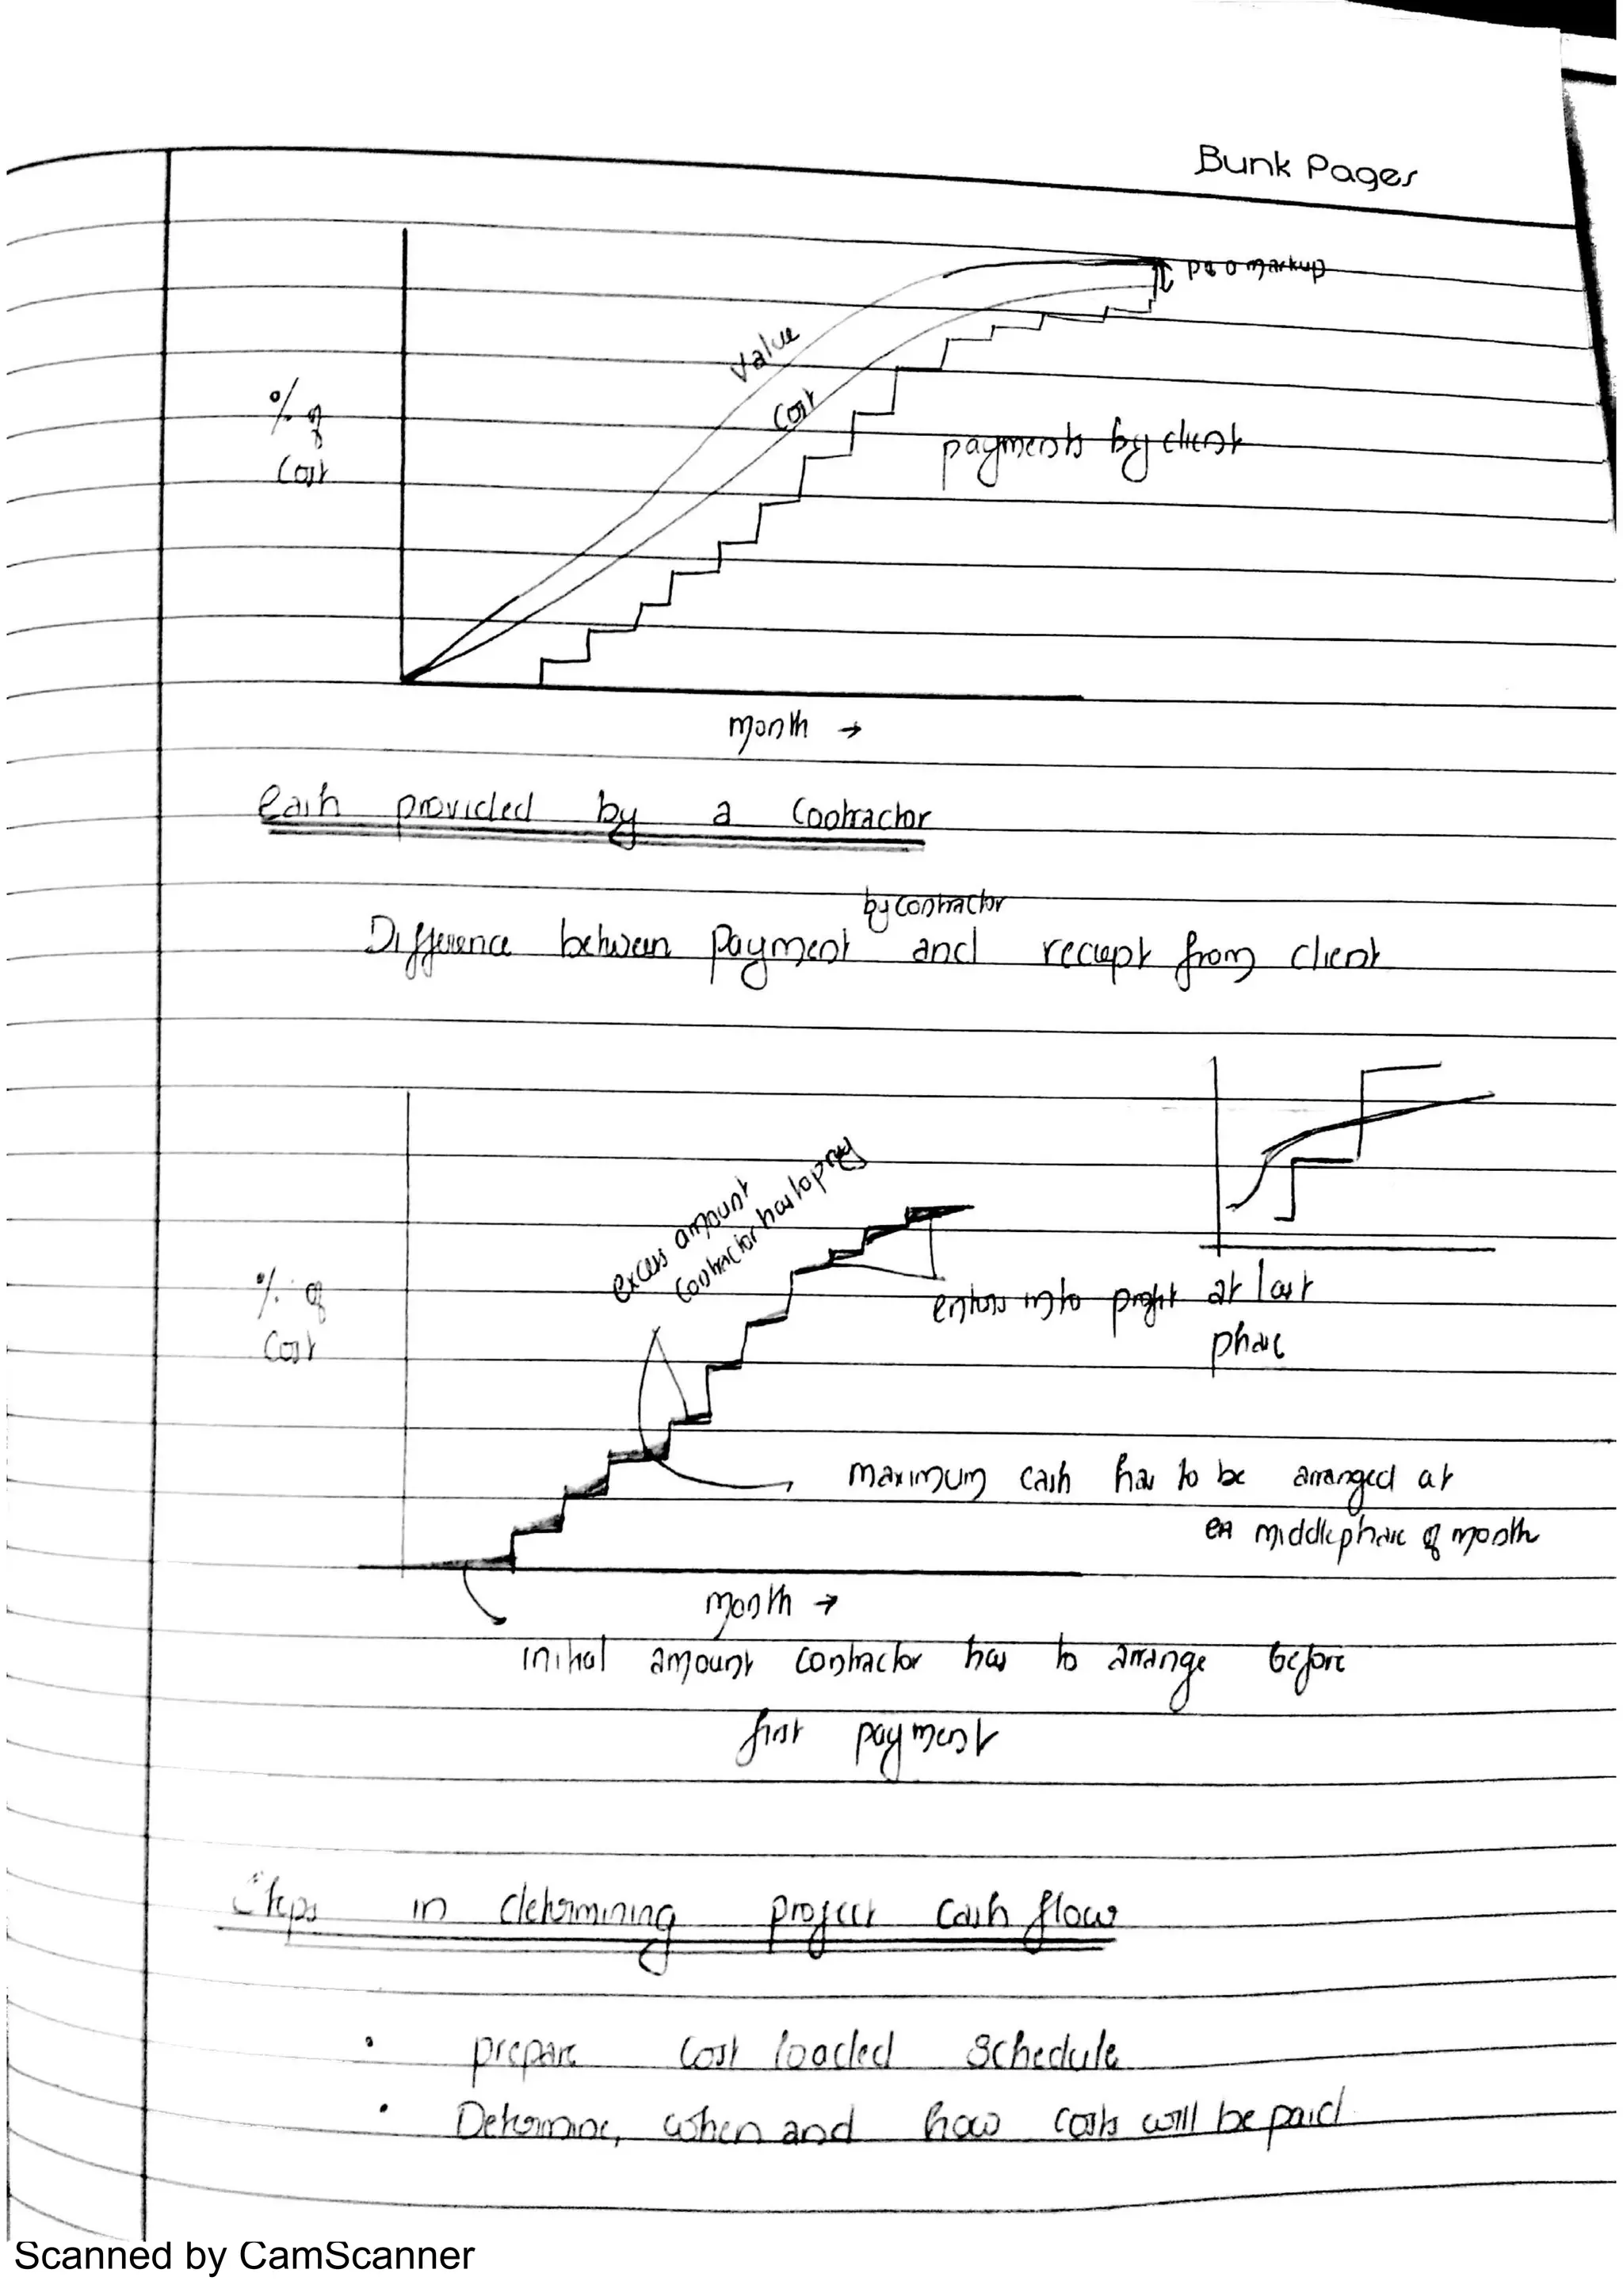 Bunk Pages
markup
Value
Cost
% of
Cost
payments by client
month →
Cash provided by a Contractor
by contractor
Difference between payment and reciept from client
excess amount
contractor has to pay
% of
Cost
enters into profit at last
phase
maximum cash has to be arranged at
middle phase of month
month →
initial amount contractor has to arrange before
first payment
Steps in determining project cash flow
• prepare cost loaded schedule
• Determine, when and how costs will be paid
Scanned by CamScanner